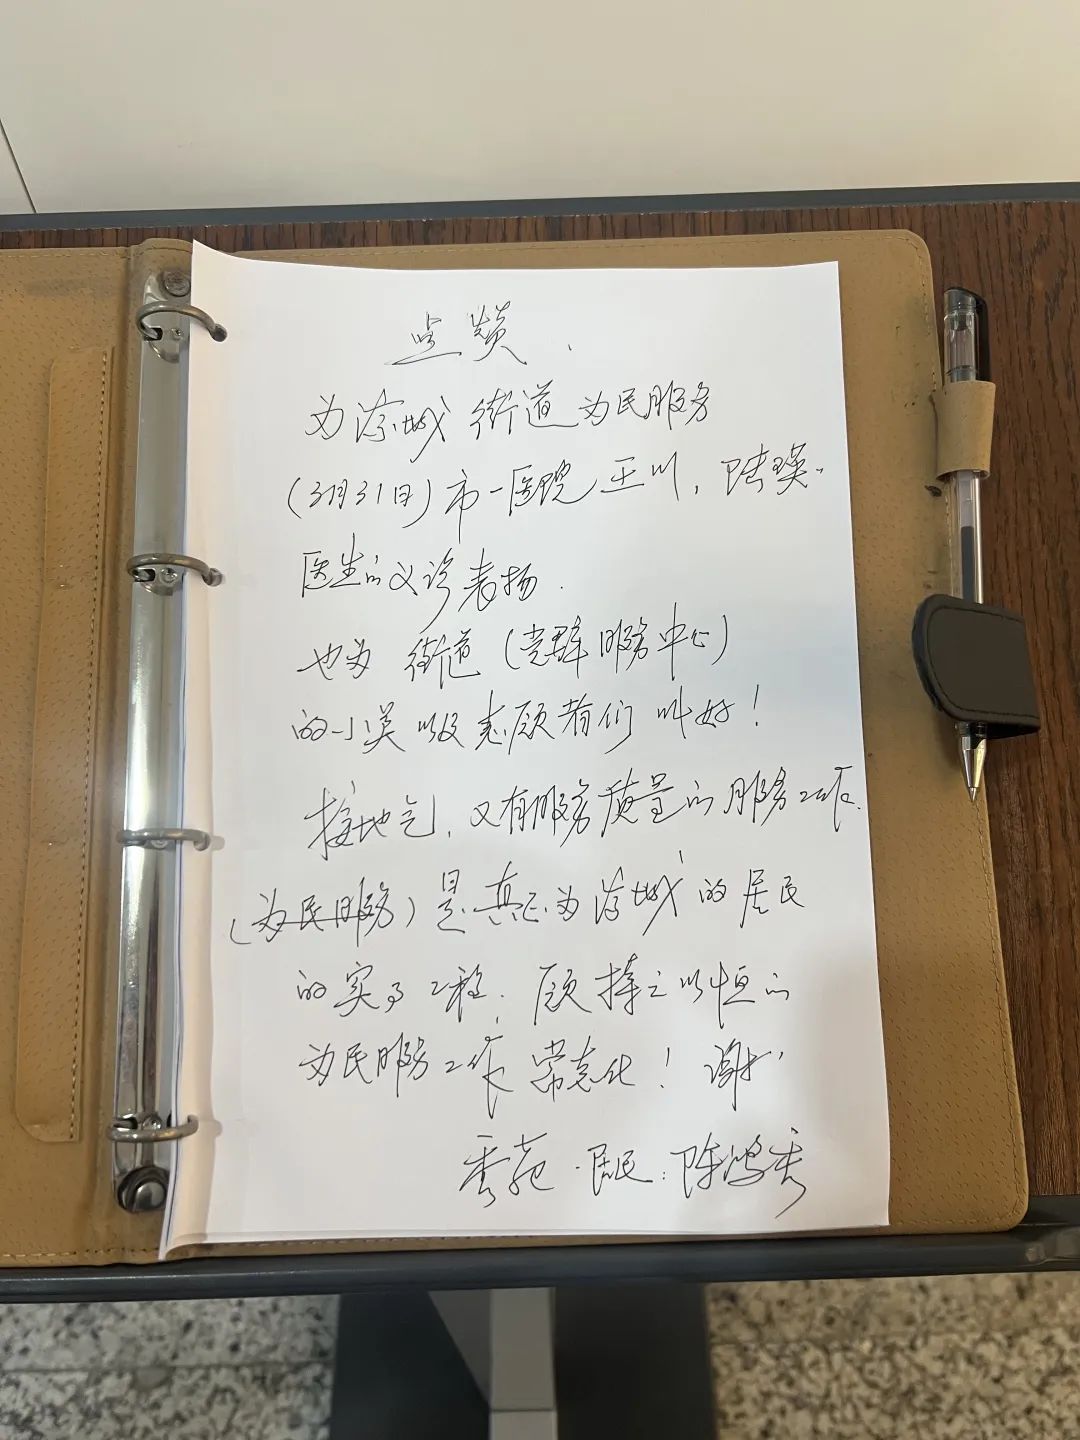 点赞
为 街道为民服务
(3月31日)市一医院王川,陆瑛
医生的义诊表扬.
也为 街道(党群服务中心)
的小吴以及志愿者们 叫好!
接地气,又有服务质量的服务工作.
(为民服务)是真正为 的居民
的实事工程. 愿持之以恒的
为民服务工作常态化! 谢谢
秀苑·居民:陈鸿秀